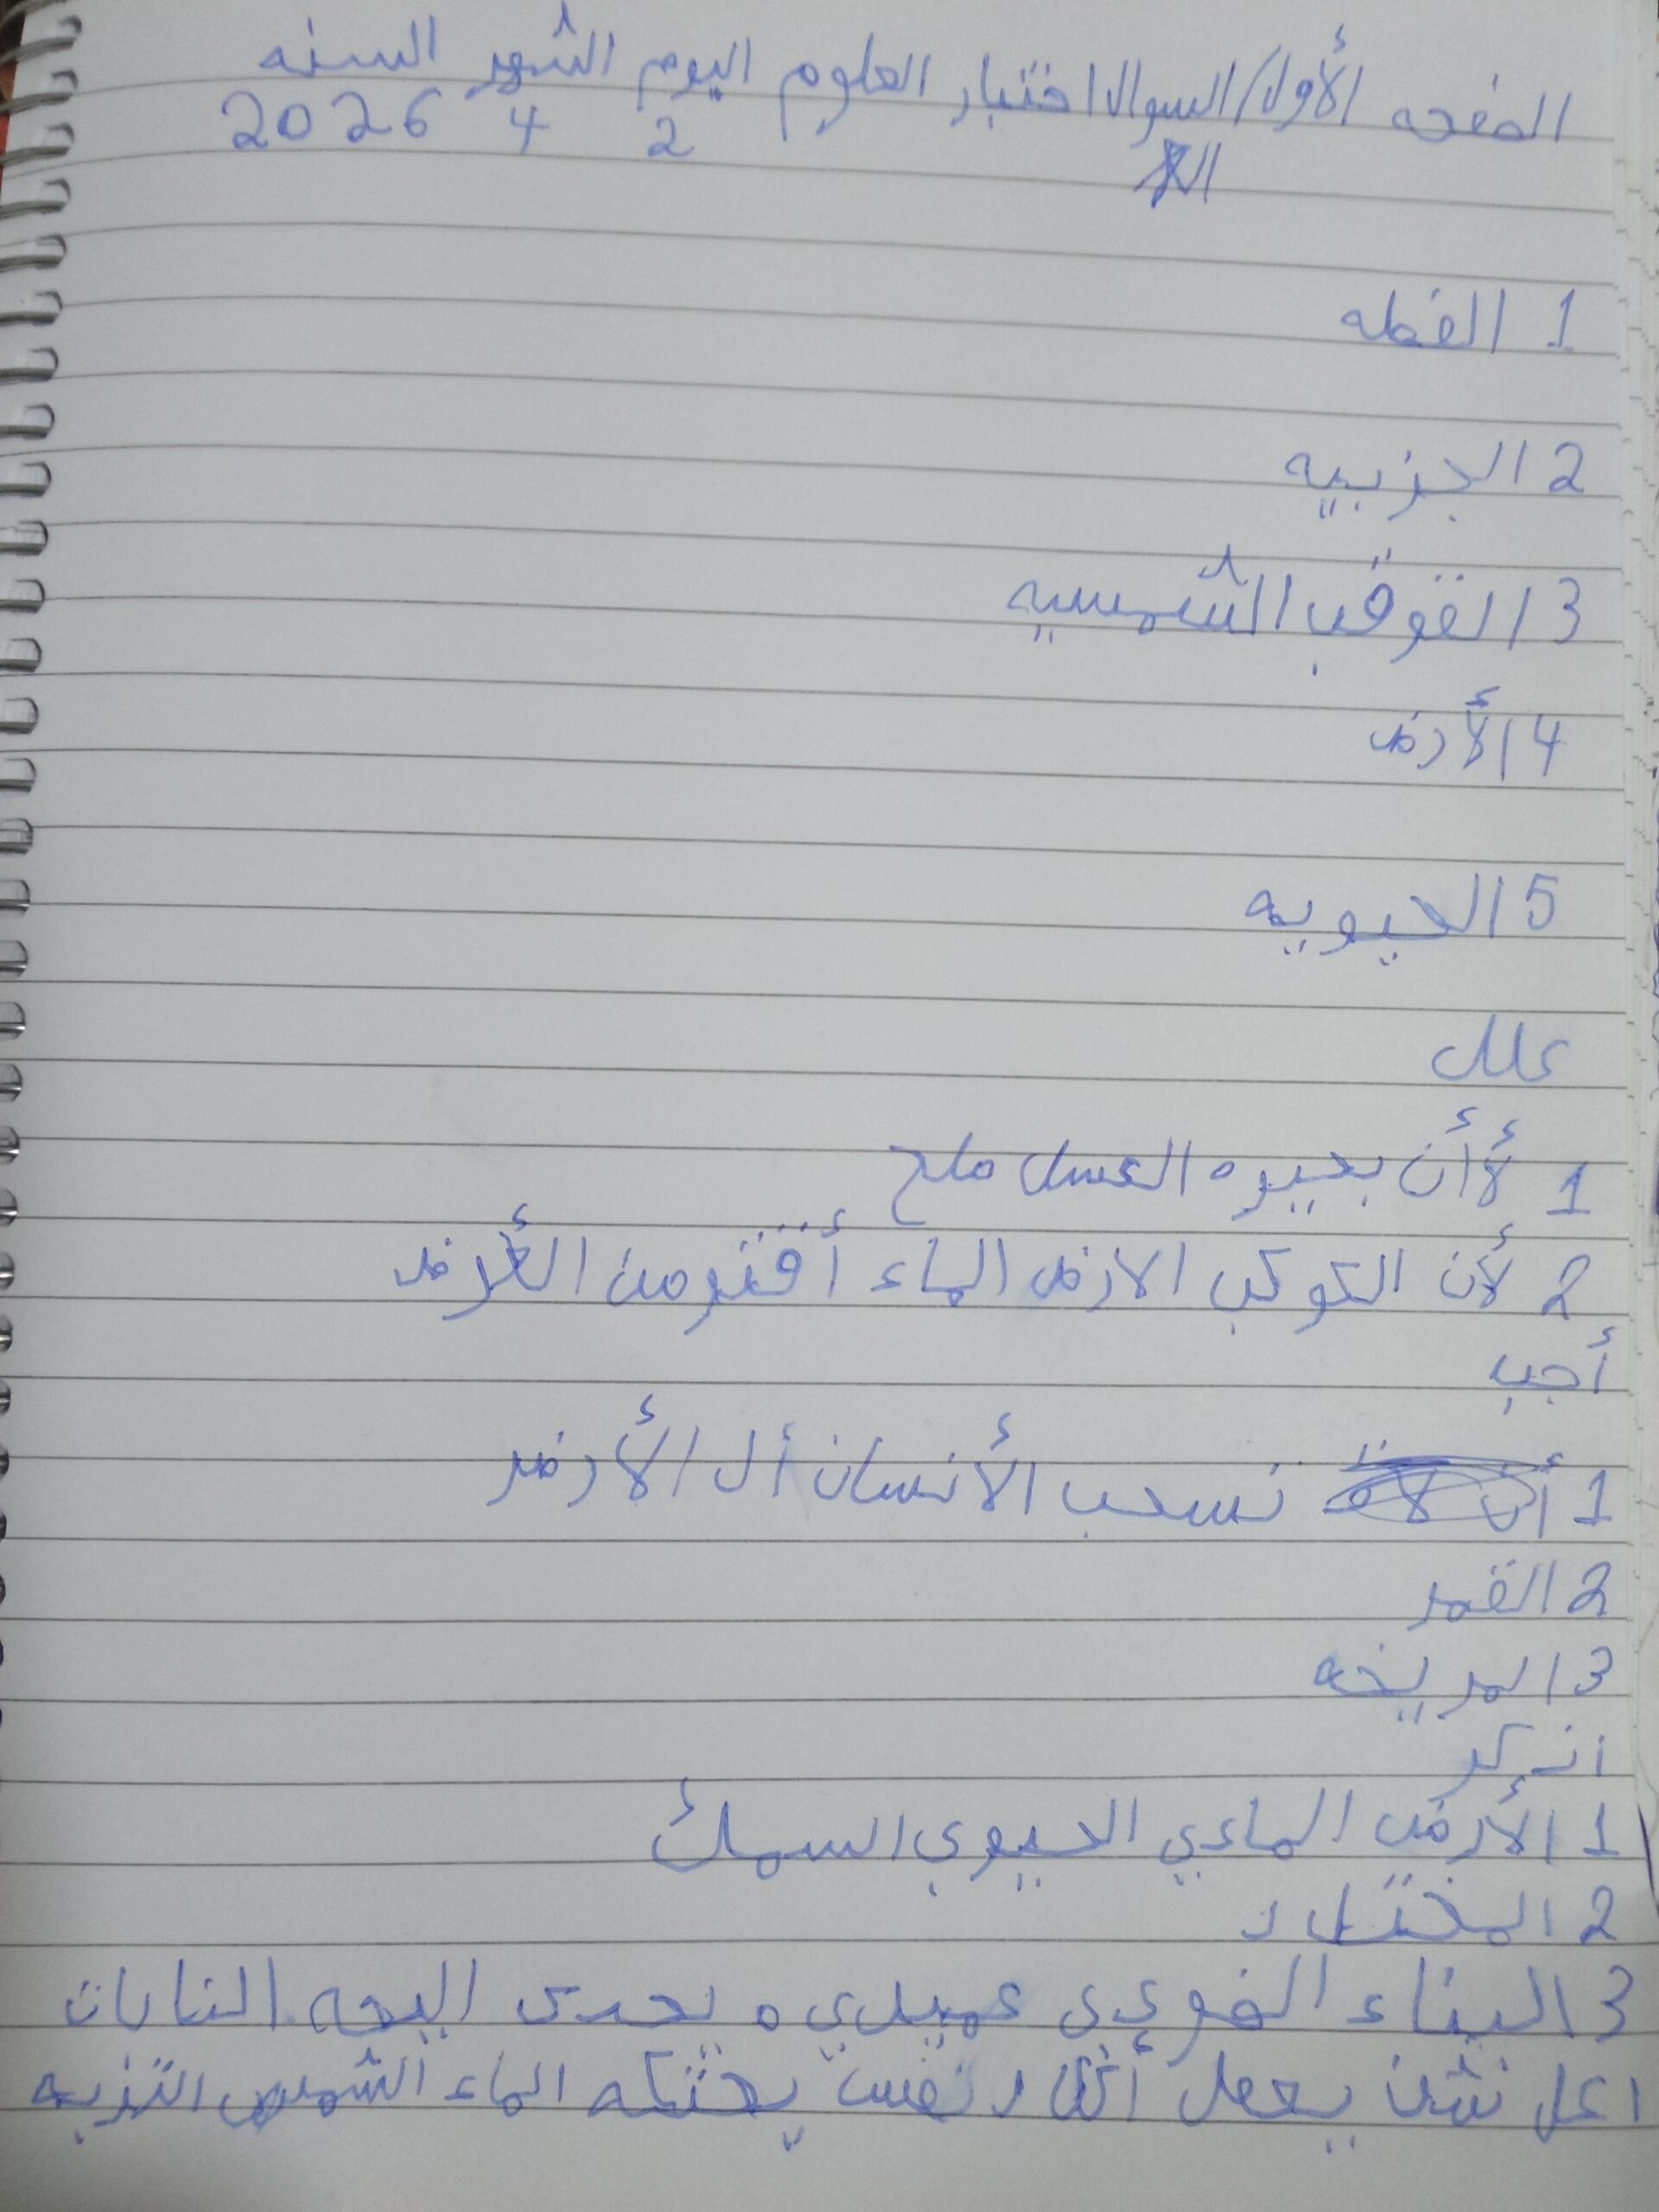 الصفحه الأول/السوال اختبار العلوم اليوم الشهر السنه
2 4 2026
1 القطه
2 الجزبيه
3 القوقب الشمسيه
4 الأرض
5 الحيويه
علل
1 لأأن بحيره العسل ملح
2 لأن الكوكب الارض الماء أقثر من الأرض
أجب
1 نسحب الأنسان أل الأرض
2 القمر
3 المريخه
اذكر
1 الأرض الماءي الحيوي السمك
2
3 البناء الضوءي عميلي ه يحدى اليحه النابات
نشن يعمل نفس يحتكه الماء الشمس التزبه